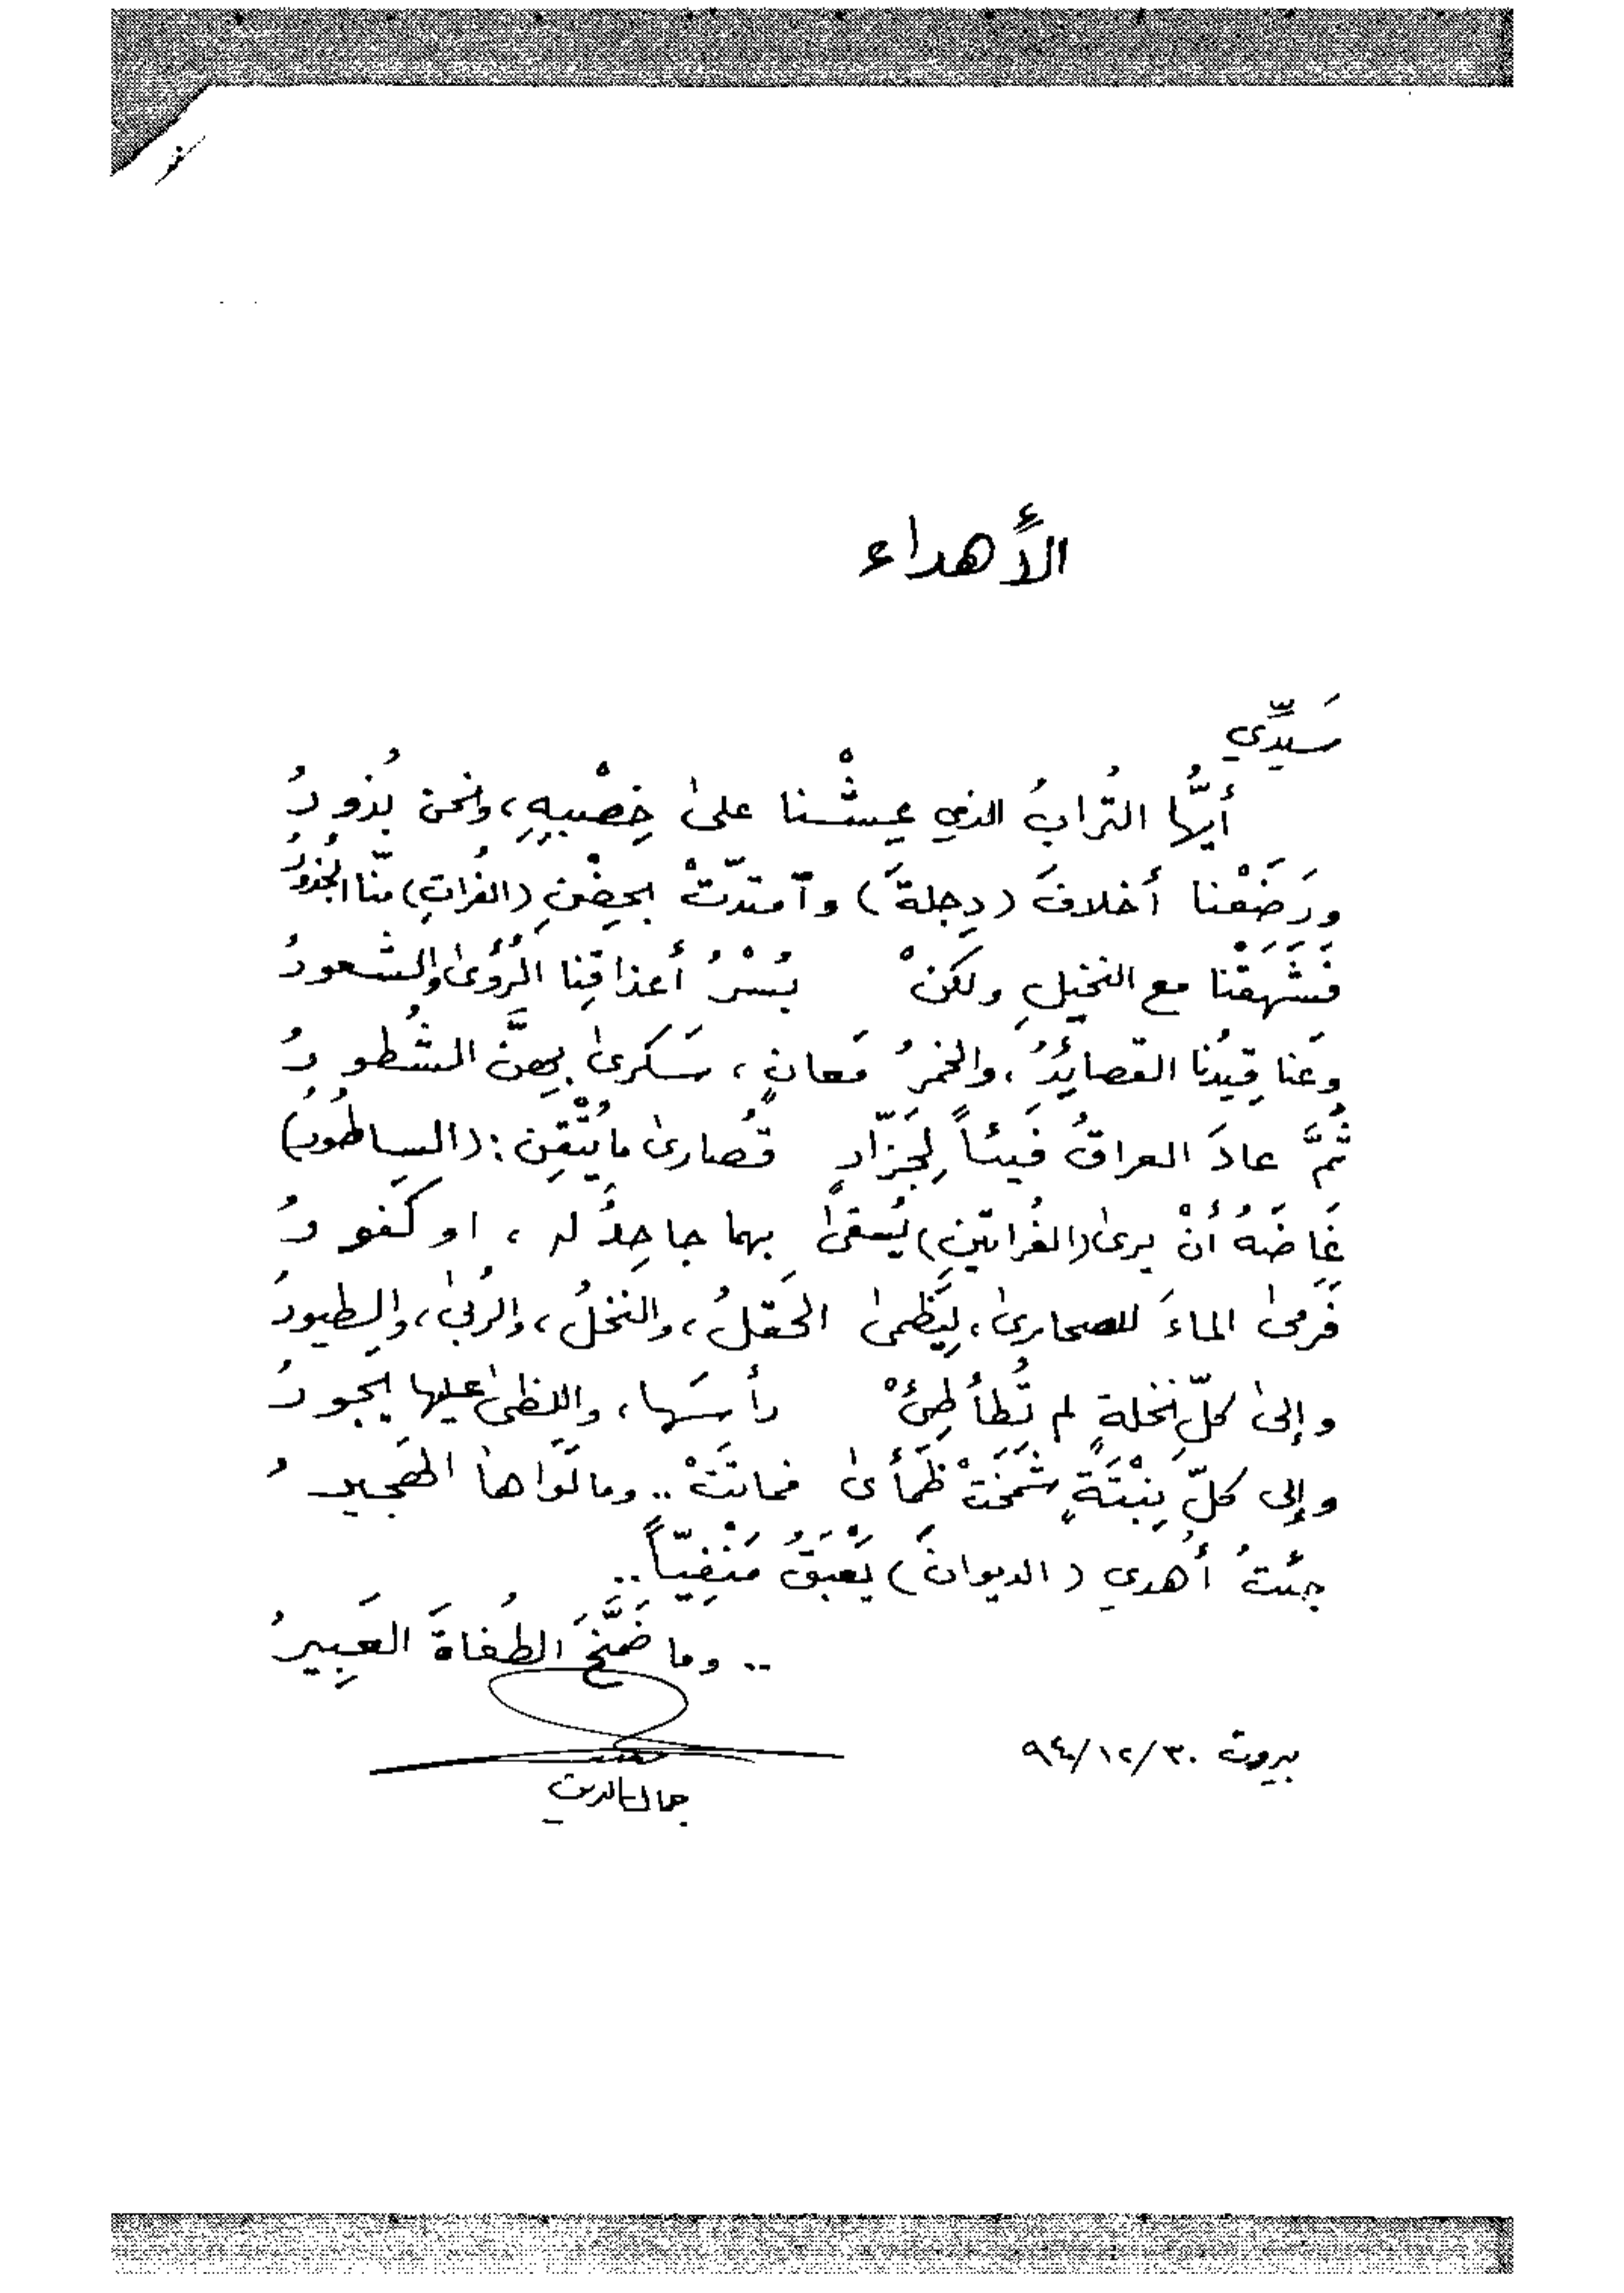 الأهداء
سَيِّدي
أيُّها التُرابُ الذي عِشْنا علىٰ خِصْبِهِ، ونحن بُذورُ
ورَضَعْنا أخلافَ (دِجلةَ) وآمتدّتْ بحِضْنِ (الفُراتِ) منّا الجُذورُ
فَشَهَقْنا مع النخيلِ ولكنْ بُسْرُ أعذاقِنا الرُؤىٰ والشعورُ
وعَناقيدُنا القصائِدُ، والخمرُ مَعانٍ، سَكرىٰ بِهِنَّ السُطورُ
ثُمَّ عادَ العراقُ فَيئاً لِجَزّارٍ قُصارىٰ ما يُتْقِن: (الساطُورُ)
غَاضَهُ أنْ يرىٰ (الفُراتَينِ) يُسقىٰ بهما جاحِدٌ له، او كَفورُ
فَرمىٰ الماءَ للصحارىٰ، لِيَظمىٰ الحَقلُ، والنخلُ، والرُبىٰ، والطيورُ
وإلىٰ كلِّ نخلةٍ لم تُطأطِئْ رأسَها، واللظىٰ عليها يَجورُ
وإلى كلّ نِبْتَةٍ شَمَخَتْ ظَمأىٰ فماتَتْ .. وما لَواها الهَجيرُ
جئتُ أُهدي (الديوانَ) يَعْبَقُ مَنْفِيّاً ..
.. وما ضَمَّخَ الطُغاةَ العَبِيرُ
بيروت ٩٤/١٢/٣٠
جمال الدين